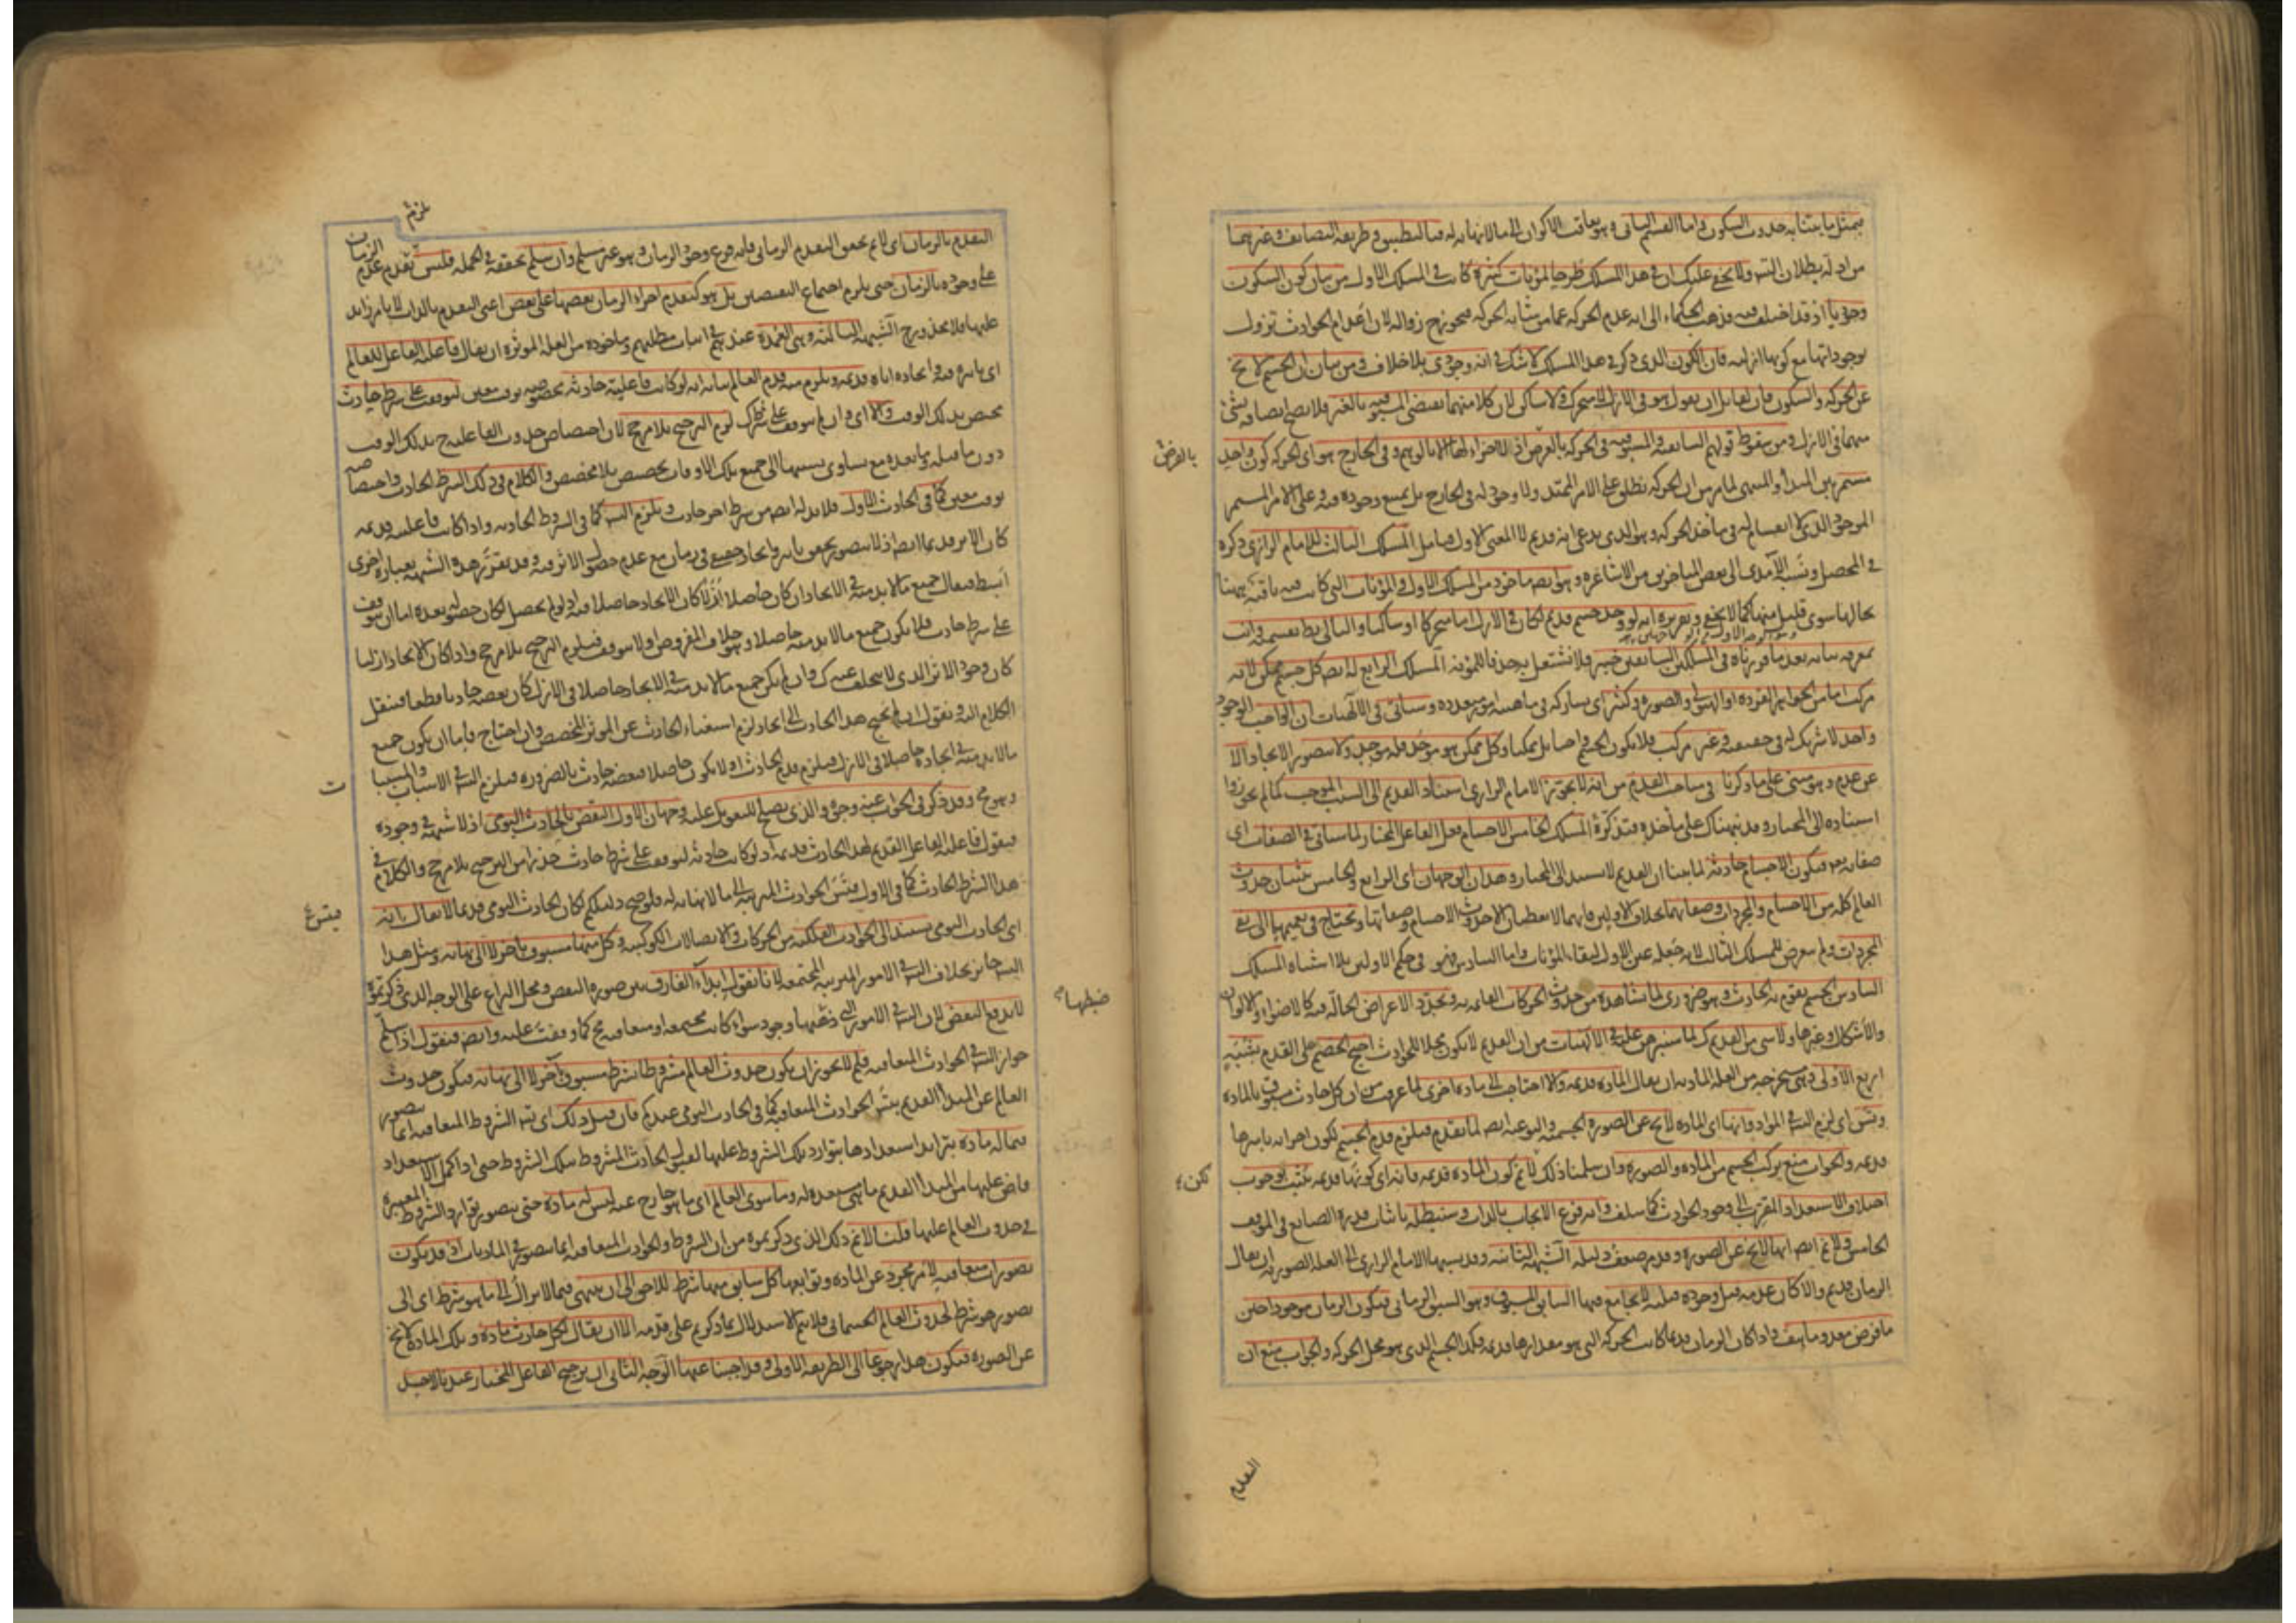 بمثل ما بيناه حدوث السكون واما القسم الثاني وهو تعاقب الاكوان الى ما لا نهاية له فبالتطبيق وطريقة التضايف وغيرهما
من ادلة بطلان التس ولا يخفى عليك ان في هذا المسلك طرحا لمؤنات كثيرة كانت في المسلك الاول من بيان كون السكون
وجوديا اذ قد اختلف فيه فذهب الحكماء الى انه عدم الحركة عما من شانه الحركة فيجوز ح زواله لان اعدام الحوادث تزول
بوجوداتها مع كونها ازلية فان الكون الذي ذكر في هذا المسلك لا شك في انه وجودى بلا خلاف ومن بيان ان الجسم لا يخ
عن الحركة والسكون فان لقائل ان يقول هو في الازل لا متحرك ولا ساكن لان كلا منهما يقتضى المسبوقية بالغير فلا يصح اتصافه بشئ
منهما في الازل ومن سقوط قولهم السابقية والمسبوقية في الحركة بالعرض اذ لا اجزاء لها الا بالوهم وفي الخارج هو اى الحركة كون واحد
بالفرض
مستمر بين المبدأ والمنتهى لما مر من ان الحركة تطلق على الامر الممتد ولا وجود له في الخارج بل يمتنع وجوده فيه وعلى الامر المستمر
الموجود الذي لا انقسام له في مأخذ الحركة وهو الذي يدعى انه قديم لا المعنى الاول فتامل المسلك الثالث للامام الرازي ذكره
في المحصل ونسبه الآمدى الى بعض المتاخرين من الاشاعرة وهو ايضا ماخوذ من المسلك الاول والمؤنات التي كانت فيه باقية ههنا
بحالها سوى قليل منها كما لا يخفى وتقريره انه لو وجد جسم قديم لكان في الازل اما متحركا او ساكنا والتالي بط بقسميه وانت
بمعرفة بيانه بعد ما قررناه في المسلكين السابقين خبير فلا نشتغل به حذفا للمؤنة المسلك الرابع له ايضا كل جسم ممكن لانه
مركب اما من الجواهر الفردة او الهيولى والصورة وكثير اى يشاركه في ماهيته امور متعددة وسياتي في الالهيات ان الواجب الوجود
واحد لا شريك له في حقيقته وغير مركب فلا يكون الجسم واجبا بل ممكنا وكل ممكن هو موجد فله موجد ولا يتصور الايجاد الا
عن عدم وهو مبنى على ما ذكرنا في مباحث القدم من انه لا يجوز الامام الرازي استناد القديم الى السبب الموجب كما لم يجوزوا
استناده الى المختار وقد نبهناك على مأخذه فتذكره المسلك الخامس الاجسام فعل الفاعل المختار لما سياتي في الصفات اى
صفاته تع فتكون الاجسام حادثة لما بينا ان القديم لا يستند الى المختار وهذان الوجهان اى الرابع والخامس يثبتان حدوث
العالم كله من الاجسام والمجردات وصفاتهما بخلاف الاولين فانهما لا يعطيان الا حدوث الاجسام وصفاتها ويحتاج في تعميمها الى نفى
المجردات ولم يتعرض للمسلك الثالث لانه جعله عين الاول لبقاء المؤنات واما السادس فهو في حكم الاولين بلا اشتباه المسلك
السادس الجسم يقوم به الحادث وهو ضروري لما نشاهده من حدوث الحركات القائمة به وتجدد الاعراض الحالة فيه كالاضواء والالوان
والاشكال وغيرها ولا شئ من القديم كك لما سنبرهن عليه في الالهيات من ان القديم لا يكون محلا للحوادث احتج الخصم على القدم بشبه
اربع الاولى وهي مستخرجة من العلة المادية ان يقال المادة قديمة والا احتاجت الى مادة اخرى لما عرفت من ان كل حادث مسبوق بالمادة
وتس اى لزم التس في المواد وانها اى المادة لا تخ عن الصورة الجسمية والنوعية ايضا لما تقدم فيلزم قدم الجسم لكون اجزائه باسرها
قديمة والجواب منع تركب الجسم من المادة والصورة وان سلمنا ذلك فلا نم كون المادة قديمة فانه اى كونها قديمة يثبت بوجوب
لكن
اختلاف الاستعداد المقرب الى وجود الحوادث كما سلف وانه فرع الايجاب بالذات وسنبطله باثبات قدرة الصانع في الموقف
الخامس ولا نم ايضا انها لا تخ عن الصورة وقد مر ضعف دليله الشبهة الثانية وقد نسبها الامام الرازي الى العلة الصورية ان يقال
الزمان قديم والا كان عدمه قبل وجوده قبلية لا يجامع فيها السابق المسبوق وهو السبق الزماني فيكون الزمان موجودا حين
ما فرض معدوما هف واذا كان الزمان قديما كانت الحركة التي هو مقدارها قديمة فكذا الجسم الذي هو محل الحركة والجواب منع ان
التقدم
يلزم
التقدم بالزمان اى لا نم تحقق التقدم الزماني فانه فرع وجود الزمان وهو غير مسلم وان سلم تحققه في الجملة فليس تقدم عدم الزمان
على وجوده بالزمان حتى يلزم اجتماع النقيضين بل هو كتقدم اجزاء الزمان بعضها على بعض اعنى التقدم بالذات لا بامر زايد
عليها فلا محذور ح الشبهة الثالثة وهي العمدة عندهم في اثبات مطلبهم وماخوذة من العلة المؤثرة ان يقال فاعلية الفاعل للعالم
اى تاثيره فيه وايجاده اياه قديمة ويلزم منه قدم العالم بيانه انه لو كانت فاعليته حادثة مخصوصة بوقت معين لتوقفت على شرط حادث
مختص بذلك الوقت والا اى وان لم يتوقف على شرط كك لزم الترجيح بلا مرجح لان اختصاص حدوث الفاعلية ح بذلك الوقت
دون ما قبله وما بعده مع تساوي نسبتها الى جميع تلك الاوقات تخصيص بلا مخصص والكلام في ذلك الشرط الحادث واختصاصه
بوقت معين كما في الحادث الاول فلا بد له ايضا من شرط اخر حادث ويلزم التس كما في الشروط الحادثة واذا كانت فاعليته قديمة
كان الاثر قديما ايضا اذ لا يتصور تحقق تاثير وايجاد حقيقي في زمان مع عدم حصول الاثر فيه وقد يقرر هذه الشبهة بعبارة اخرى
ابسط فيقال جميع ما لا بد منه في الايجاد ان كان حاصلا ازلا كان الايجاد حاصلا فيه اذ لو لم يحصل لكان حصوله بعده اما ان يتوقف
على شرط حادث فلا يكون جميع ما لا بد منه حاصلا وهو خلاف المفروض او لا يتوقف فيلزم الترجيح بلا مرجح واذا كان الايجاد ازليا
كان وجود الاثر الذي لا يتخلف عنه كك وان لم يكن جميع ما لا بد منه في الايجاد حاصلا في الازل كان بعضه حادثا قطعا فننقل
الكلام اليه ونقول ان لم يحتج هذا الحادث الى ايجاد لزم استغناء الحادث عن المؤثر المخصص وان احتاج فاما ان يكون جميع
ما لا بد منه في ايجاده حاصلا في الازل فيلزم قدم الحادث او لا يكون حاصلا فبعضه حادث بالضرورة فيلزم التس في الاسباب والمسببا
ت
وهو مح وقد ذكر في الجواب عنه وجوه والذي يصلح للتعويل عليه وجهان الاول النقض بالحادث اليومي اذ لا شبهة في وجوده
فيقول فاعلية الفاعل القديم لهذا الحادث قديمة اذ لو كانت حادثة لتوقفت على شرط حادث حذرا من الترجيح بلا مرجح والكلام في
هذا الشرط الحادث كما في الاول فتس الحوادث المترتبة الى ما لا نهاية له فلو صح دليلكم لكان الحادث اليومي قديما لا يقال بانه
اى الحادث اليومي يستند الى الحوادث الفلكية من الحركات والاتصالات الكوكبية وكل منها مسبوق باخر لا الى نهاية ومثل هذا
التس جائز بخلاف التس في الامور المترتبة المجتمعة لانا نقول ابداء الفارق بين صورة النقض ومحل النزاع على الوجه الذي ذكرتموه
ضبطها
لا يدفع النقض لان التس في الامور التي ضبطها وجود سواء كانت مجتمعة او متعاقبة مح كما وقفت عليه وايضا فنقول اذا سلم
جواز التس في الحوادث المتعاقبة فلم لا يجوز ان يكون حدوث العالم مشروطا بشرط مسبوق بآخر لا الى نهاية فيكون حدوث
العالم عن المبدأ القديم بتس الحوادث المتعاقبة كما في الحادث اليومي عندكم فان قيل ذلك اى تس الشروط المتعاقبة انما يتصور
فيما له مادة يتزايد استعدادها بتوارد تلك الشروط عليها لقبول الحادث المشروط بتلك الشروط حتى اذا كمل الاستعداد
فاض عليها من المبدأ القديم ما هي مستعدة له وما سوى العالم اى ما هو خارج عنه ليس له مادة حتى يتصور توارد الشروط المعتبرة
في حدوث العالم عليها قلنا لا نم ذلك الذي ذكرتموه من ان الشروط والحوادث المتعاقبة انما يتصور في الماديات اذ قد يكون
تصورات متعاقبة لامر مجرد عن المادة وتوابعها كل سابق منها شرط للاحق الى ان ينتهى فيما لا يزال الى ما هو شرط اى الى
تصور هو شرط لحدوث العالم الجسماني فلا يتم الاستدلال بما ذكرتم على قدمه الا ان يقال لكل حادث مادة وتلك المادة لا تخ
عن الصورة فيكون هذا رجوعا الى الطريقة الاولى وقد اجبنا عنها الوجه الثاني ان ترجيح الفاعل المختار عندنا لاحد